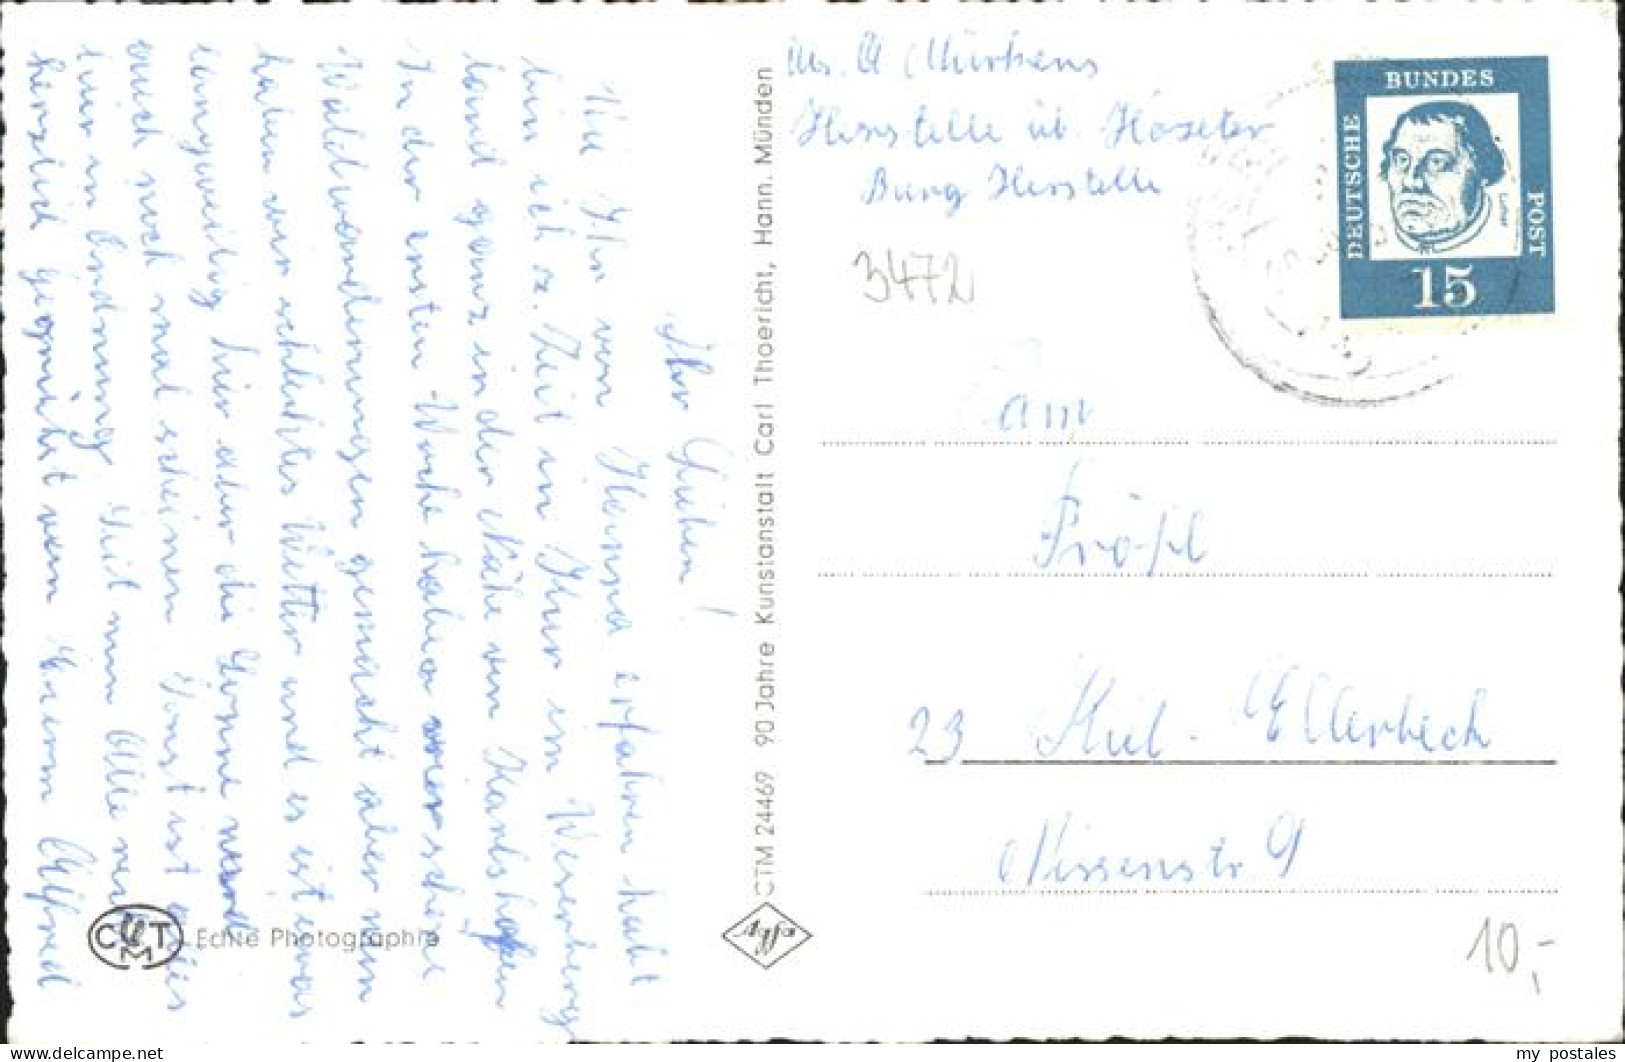 Ihr Lieben!
Wie Ihr von Hanna erfahren habt
bin ich z. Zeit in Kur im Weserberg
land ganz in der Nähe von Karlshafen
In der ersten Woche haben wir schöne
Waldwanderungen gemacht aber nun
haben wir schlechtes Wetter und es ist etwas
langweilig hier aber die Sonne wird
auch noch mal scheinen Sonst ist alles
hier in Ordnung Seit nun Alle recht
herzlich gegrüßt von Eurem Alfred
CTM Echte Photographie
CTM 24469 90 Jahre Kunstanstalt Carl Thoericht, Hann. Münden
Agfa
Abs. A Mürkens
Herstelle üb. Höxter
Burg Herstelle
3472
DEUTSCHE BUNDES POST
Luther
15
An
Fröhl
23 Kiel-Ellerbeck
Nissenstr. 9
10,-
my_postales